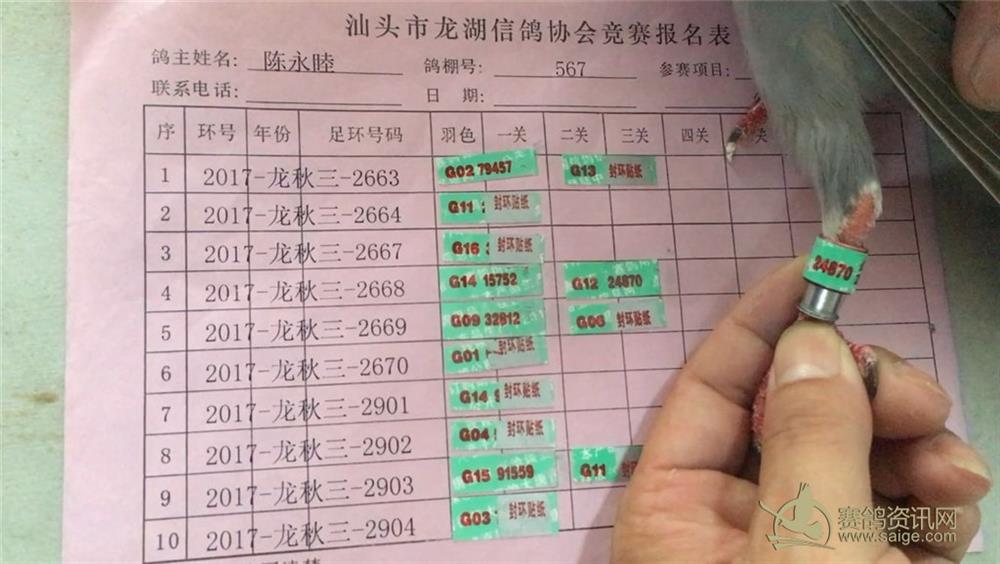 汕头市龙湖信鸽协会竞赛报名表
鸽主姓名: 陈永睦 鸽棚号: 567 参赛项目:
联系电话: 日 期:
序 环号 年份 足环号码 羽色 一关 二关 三关 四关 关
1 2017-龙秋三-2663 G02 79457 G13 封环贴纸
2 2017-龙秋三-2664 G11 封环贴纸
3 2017-龙秋三-2667 G16 封环贴纸
4 2017-龙秋三-2668 G14 15752 G12 24870
5 2017-龙秋三-2669 G09 32812 G06 封环贴纸
6 2017-龙秋三-2670 G01 封环贴纸
7 2017-龙秋三-2901 G14 封环贴纸
8 2017-龙秋三-2902 G04 封环贴纸
9 2017-龙秋三-2903 G15 91559 G11 封环
10 2017-龙秋三-2904 G03 封环贴纸
24870
赛鸽资讯网
www.saige.com